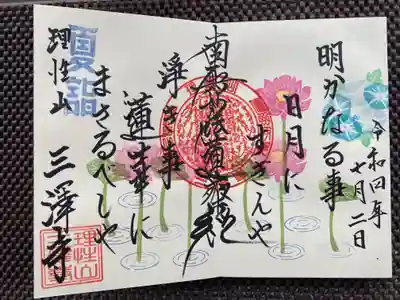 令和四年
七月二日
明かなる事
日月に
すぎんや
南無妙法蓮華経
浄き事
蓮華に
まさるべしや
夏詣
理性山
三澤寺